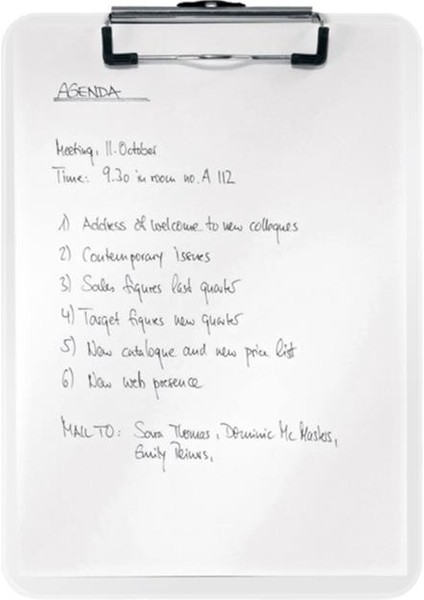 AGENDA
Meeting, 11. October
Time: 9.30 in room no. A 112
1) Address of welcome to new collegues
2) Contemporary issues
3) Sales figures last quarter
4) Target figures new quarter
5) New catalogue and new price list
6) New web presence
MAIL TO: Sara Thomas, Dominic Mc Masters,
Emily